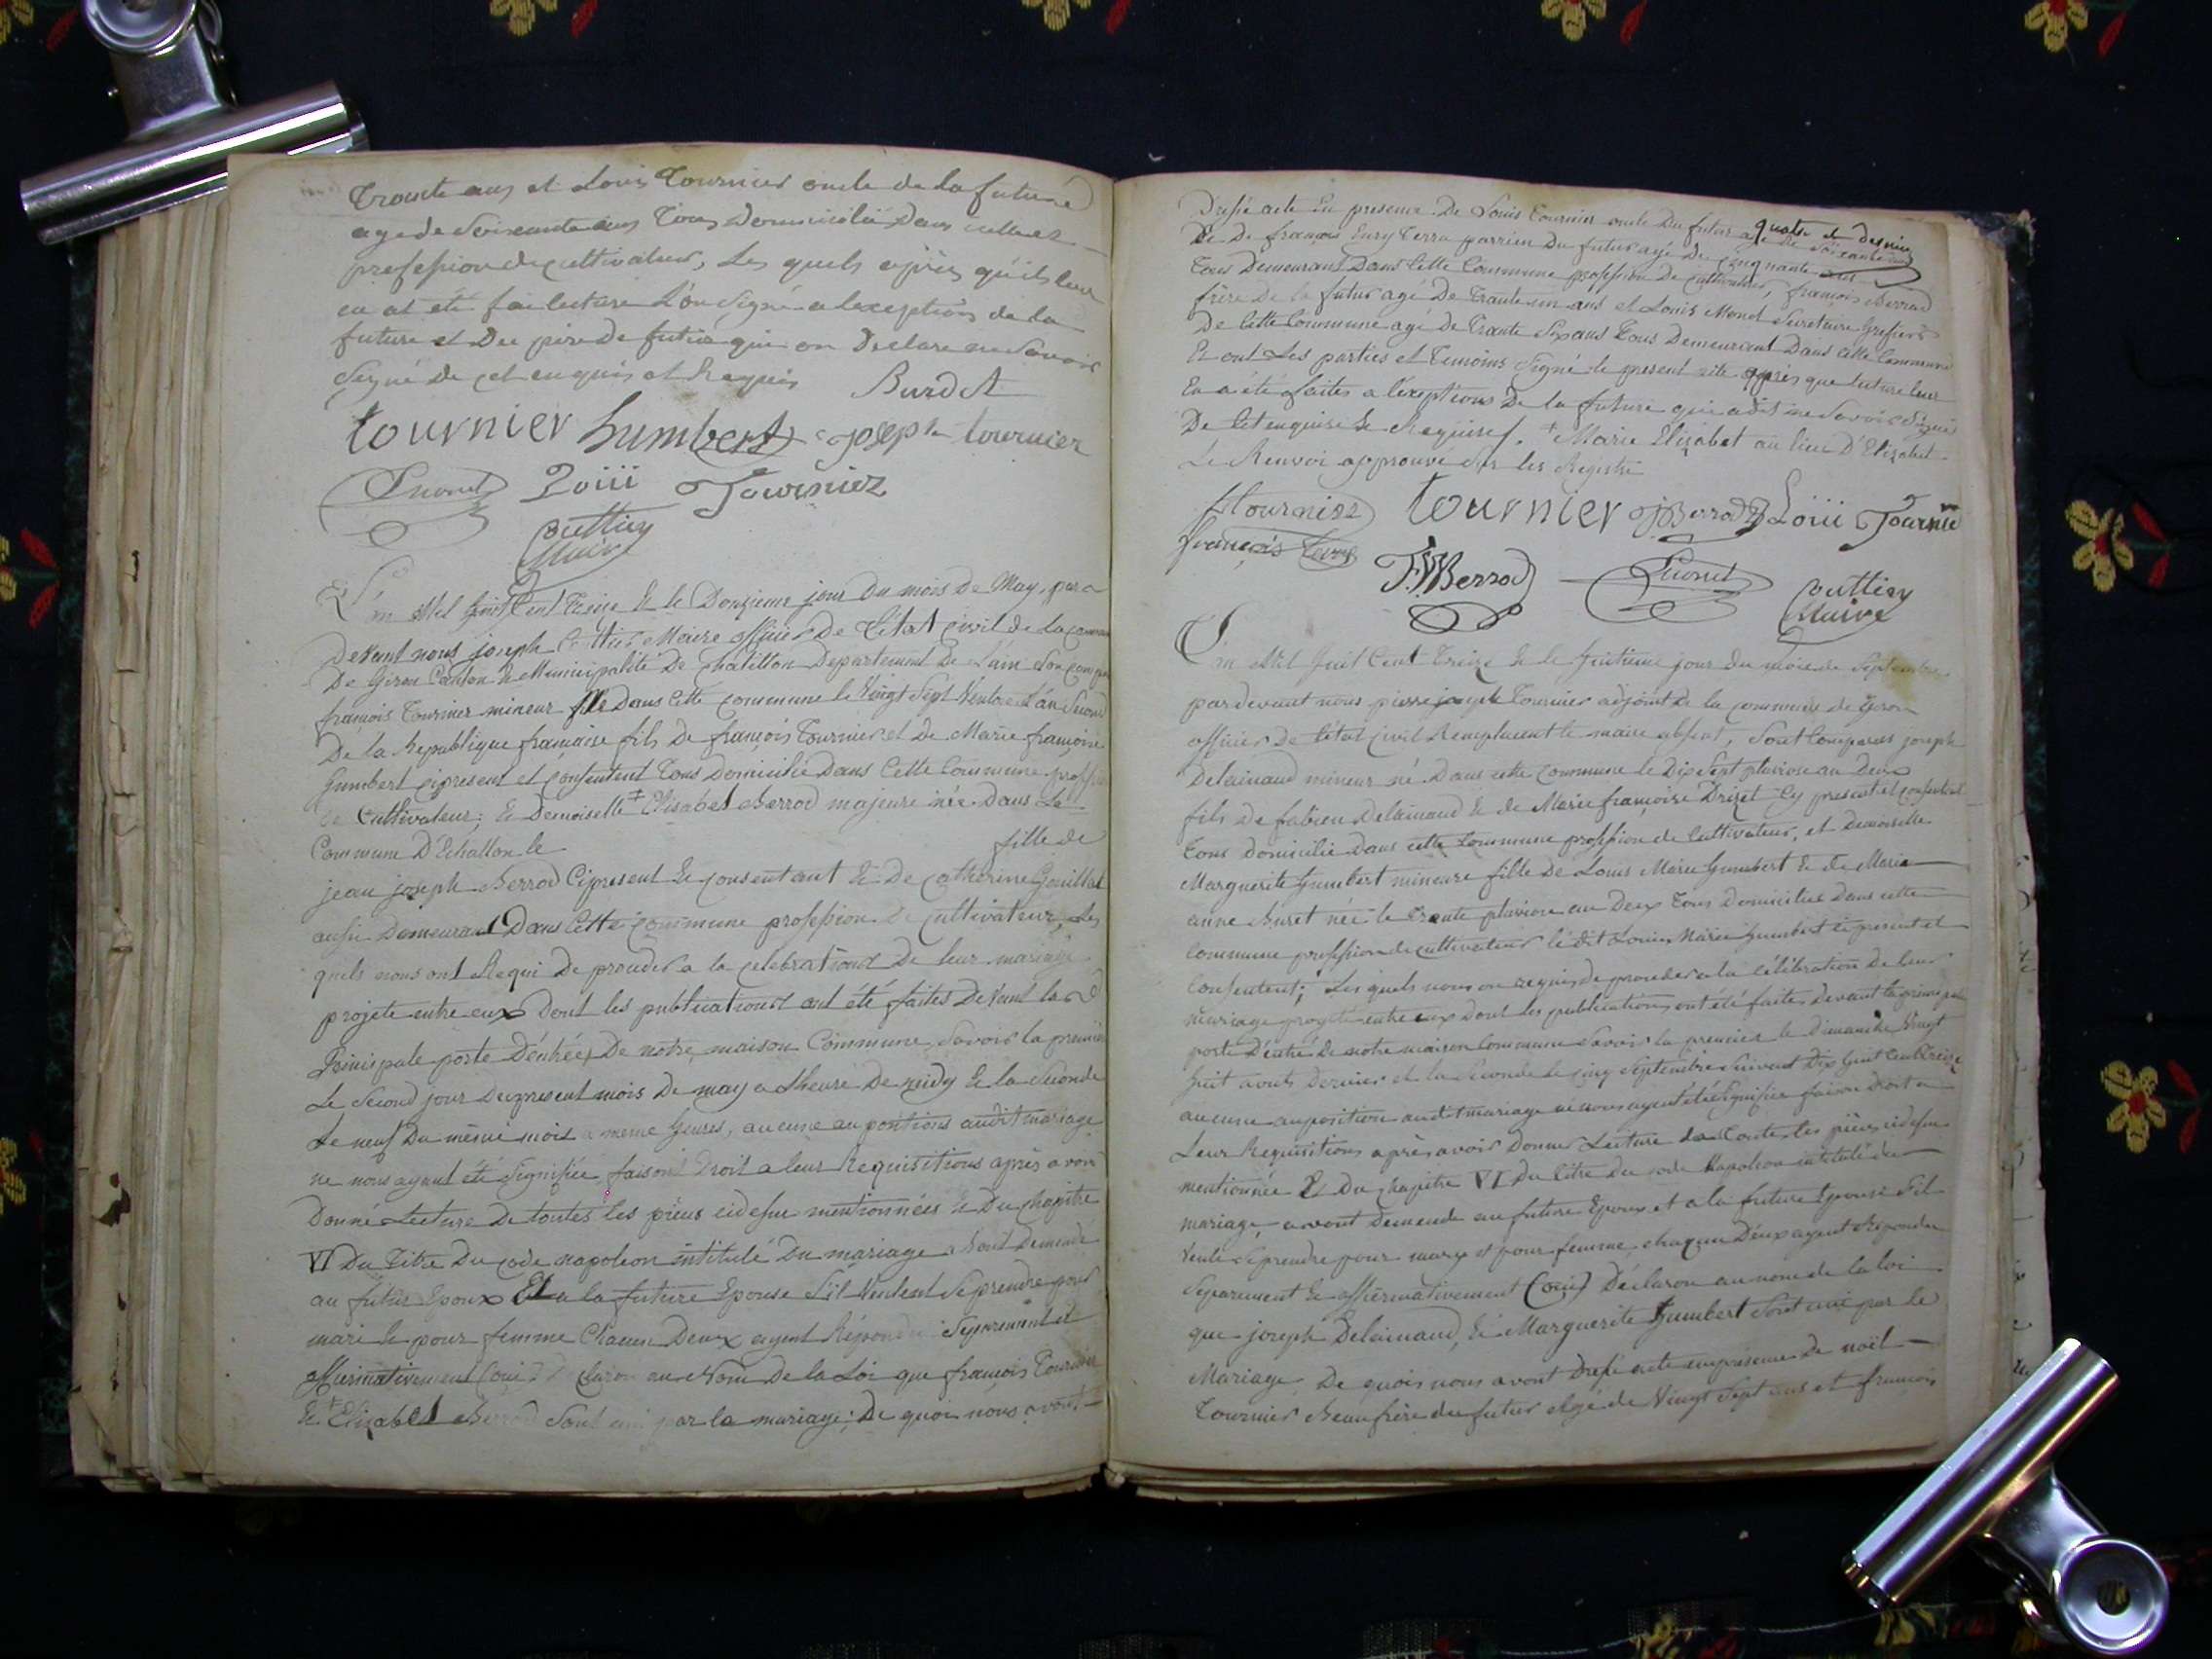 Trante ans et Louis Tournier oncle de la future
agé de Soixante ans Tous Domicilié Dans cette
profession de cultivateur, Les quels après qu'ils leur
en at été fai lecture L'on Signé a lexception de la
future et Du père de future qui on Declare ne Savoir
Signé De cet enquis et Requis Burdet
tournier humbert joseph tournier
Loüi Tournier
Outtier
Maire
L'an Mil huit Cent Treize & le Douzieme jour Du mois de May, par
Devant nous joseph Maire officier De l'état civil de la
De Giron Canton & Municipalité De Chatillon Departement De L'ain Son
françois Tournier mineur Dans Cette commune le Vingt Sept Ventose L'an Second
De la Republique française fils De françois Tournier et De Marie françoise
humbert cipresent et consentent Tous Domicilié Dans Cette Commune
de Cultivateur; & Demoiselle ‡ Elisabet Berrod majeure née Dans La
Commune D'Echallon le fille de
jean joseph Berrod Cipresent & consentant & De Catherine Gouillat
ausi Demeurant Dans Cette commune profession de cultivateur, Les
quels nous ont Requi De proceder a la celebration De leur mariage
projeté entre eux Dont les publications ont été faites Devant la
Principale porte D'entrée De notre maison Commune, Savoir la premier
Le Second jour Du present mois De may a Lheure De midy & la Seconde
Le neuf Du même mois a meme heures, aucune aupositions audit mariage
ne nous ayant été Signifiée faisont Droit a leur Requisitions après avoir
Donné Lecture De toutes les pièces cidessus mentionnées & Du Chapitre
VI Du Titre Du code napoleon intitulé Du mariage avont Demandé
au futur Epoux Et a la future Epouse S'il Veulent Se prendre pour
mari & pour femme Chacun Deux ayent Répondu Séparement et
affirmativement (oui) Declaron au Nom De la Loi que françois Tournier
& ‡ Elizabet Berrod Sont uni par la mariage; De quoi nous avont
Dressé acte En presence De Louis Tournier oncle Du futur agé De Soixante quatre et dernier
De De françois Terra parrien Du futur agé De cinquante ans
Tous Demeurant Dans Cette Commune profession De cultivateur, françois Berrod
frère De la futur agé De Trante un ans et Louis Mond Secretaire Grefier
De Cette Commune agé De Trante Six ans Tous Demeurant Dans Cette Commune
Et ont Les parties et Temoins Signé le present acte après que lecture leur
En a été faites a l'exeptions De la future qui a dit ne Savoir Signé
De Cet enquise & Requise. ‡ Marie Elizabet au lieu D'Elizabet
Le Renvoi approuvé Sur les Registre
tournier tournier JJBerrod Loüi Tournie
françois
Berrod Outtier
Maire
L'an Mil huit Cent Treize & le huitieme jour du mois de Septembre
pardevant nous pierre joseph Tournier adjoint de la commune de Giron
officier De l'état Civil Remplacent le maire absent, Sont Comparus joseph
Delainaud mineur né Dans cette commune le Dix Sept pluviose an Deux
fils De fabien Delainaud & de Marie françoise Drizet Cy present et consentent
Tous domicilie dans cette Commune profession de Cultivateur, et Demoiselle
Marguerite humbert mineure fille De Louis Marie humbert & de Marie
anne Buret née le Trante pluviose an Deux Tous Domicilié Dans cette
Commune profession de cultivateur le dit Louis Marie humbert ci present et
Consentent; Les quels nous on requis de proceder a la célébration De leur
mariage projeté entre eux dont les publications ont été faites devant la principale
porte D'entré de notre maison Commune Savoir la premier le Dimanche Vingt
huit aouts Dernier et la Seconde le cinq Septembre Suivent Dix huit Cent Treize
aucune auposition audit mariage ne nous ayent été Signifiée faison Droit a
Leur Requisitions après avoir Donner Lecture de Toute les pièces cidessus
mentionnée & Du Chapitre VI Du titre Du code Napoleon intitulé du
mariage, avont Demande au future Epoux et a la future Epouse S'il
Veule Se prendre pour mary et pour femme, chaqun D'eux ayent Repondu
Separement & affirmativement (oui) Déclaron au nom de la loi
que joseph Delainaud, & Marguerite humbert Sont uni par le
Mariage, De quois nous avont Dressé acte en presence De noël
Tournier Beau frère du futur Agé de Vingt Sept ans et françois